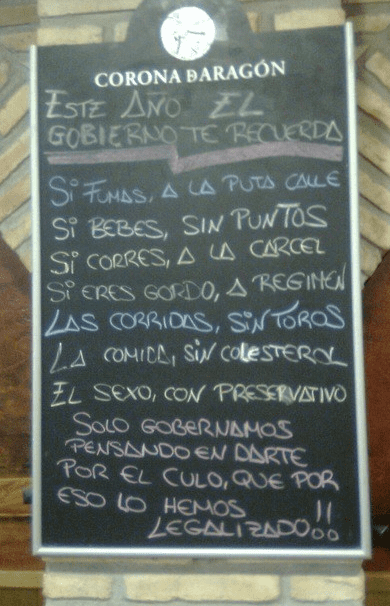 CORONA DARAGÓN
ESTE AÑO EL
GOBIERNO TE RECUERDA
SI FUMAS, A LA PUTA CALLE
SI BEBES, SIN PUNTOS
SI CORRES, A LA CARCEL
SI ERES GORDO, A REGIMEN
LAS CORRIDAS, SIN TOROS
LA COMIDA, SIN COLESTEROL
EL SEXO, CON PRESERVATIVO
SOLO GOBERNAMOS
PENSANDO EN DARTE
POR EL CULO, QUE POR
ESO LO HEMOS
LEGALIZADO!!